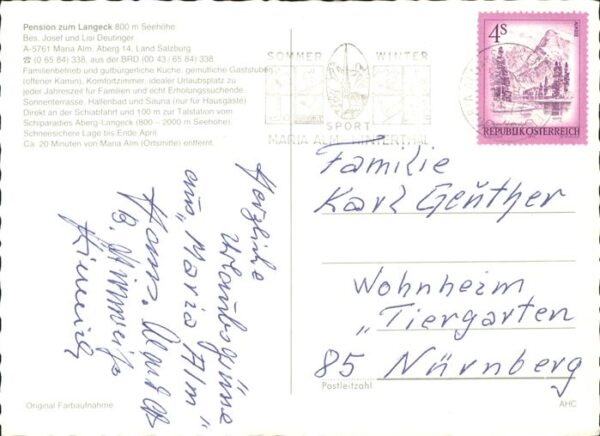 Pension zum Langeck 800 m Seehöhe
Bes. Josef und Lisi Deutinger
A-5761 Maria Alm, Aberg 14, Land Salzburg
☎ (0 65 84) 338, aus der BRD (00 43/65 84) 338
Familienbetrieb und gutbürgerliche Küche, gemütliche Gaststuben
(offener Kamin), Komfortzimmer, idealer Urlaubsplatz zu
jeder Jahreszeit für Familien und echt Erholungssuchende.
Sonnenterrasse, Hallenbad und Sauna (nur für Hausgäste)
Direkt an der Schiabfahrt und 100 m zur Talstation vom
Schiparadies Aberg-Langeck (800 – 2000 m Seehöhe).
Schneesichere Lage bis Ende April.
Ca. 20 Minuten von Maria Alm (Ortsmitte) entfernt.
SOMMER WINTER
SPORT
MARIA ALM HINTERTHAL
4S
REPUBLIK ÖSTERREICH
Familie
Karl Genther
Wohnheim
"Tiergarten
85 Nürnberg
Postleitzahl
Herzliche
Urlaubsgrüße
aus "Maria Alm"
Original Farbaufnahme
AHC